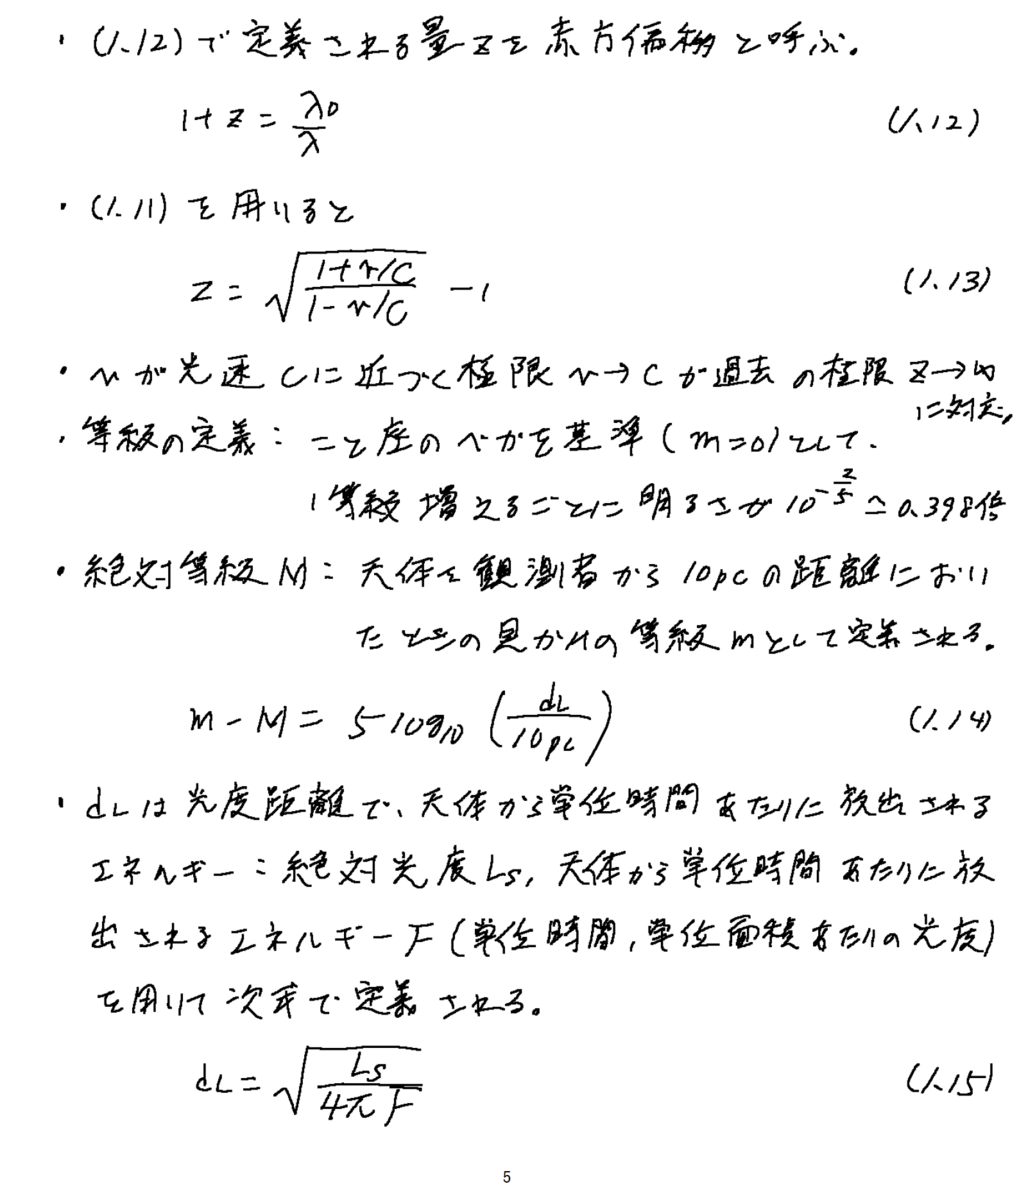 ・(1.12)で定義される量zを赤方偏移と呼ぶ。
1+z = λ0/λ (1.12)
・(1.11)を用いると
z = √((1+v/c)/(1-v/c)) - 1 (1.13)
・vが光速cに近づく極限v→cが過去の極限z→∞に対応。
・等級の定義: こと座のベガを基準(m=0)として、
1等級増えるごとに明るさが10^{-2/5}≃0.398倍
・絶対等級M: 天体を観測者から10pcの距離におい
たときの見かけの等級mとして定義される。
m-M = 5log10(dL/10pc) (1.14)
・dLは光度距離で、天体から単位時間あたりに放出される
エネルギー:絶対光度Ls, 天体から単位時間あたりに放
出されるエネルギーF(単位時間,単位面積あたりの光度)
を用いて次式で定義される。
dL = √(Ls/4πF) (1.15)
5